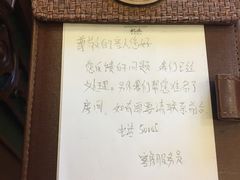 尊敬的客人您好
您反馈的问题 我们已经
处理。另外我们帮您准备了
房间,如有需要请联系前台
电话 50005
客房服务员